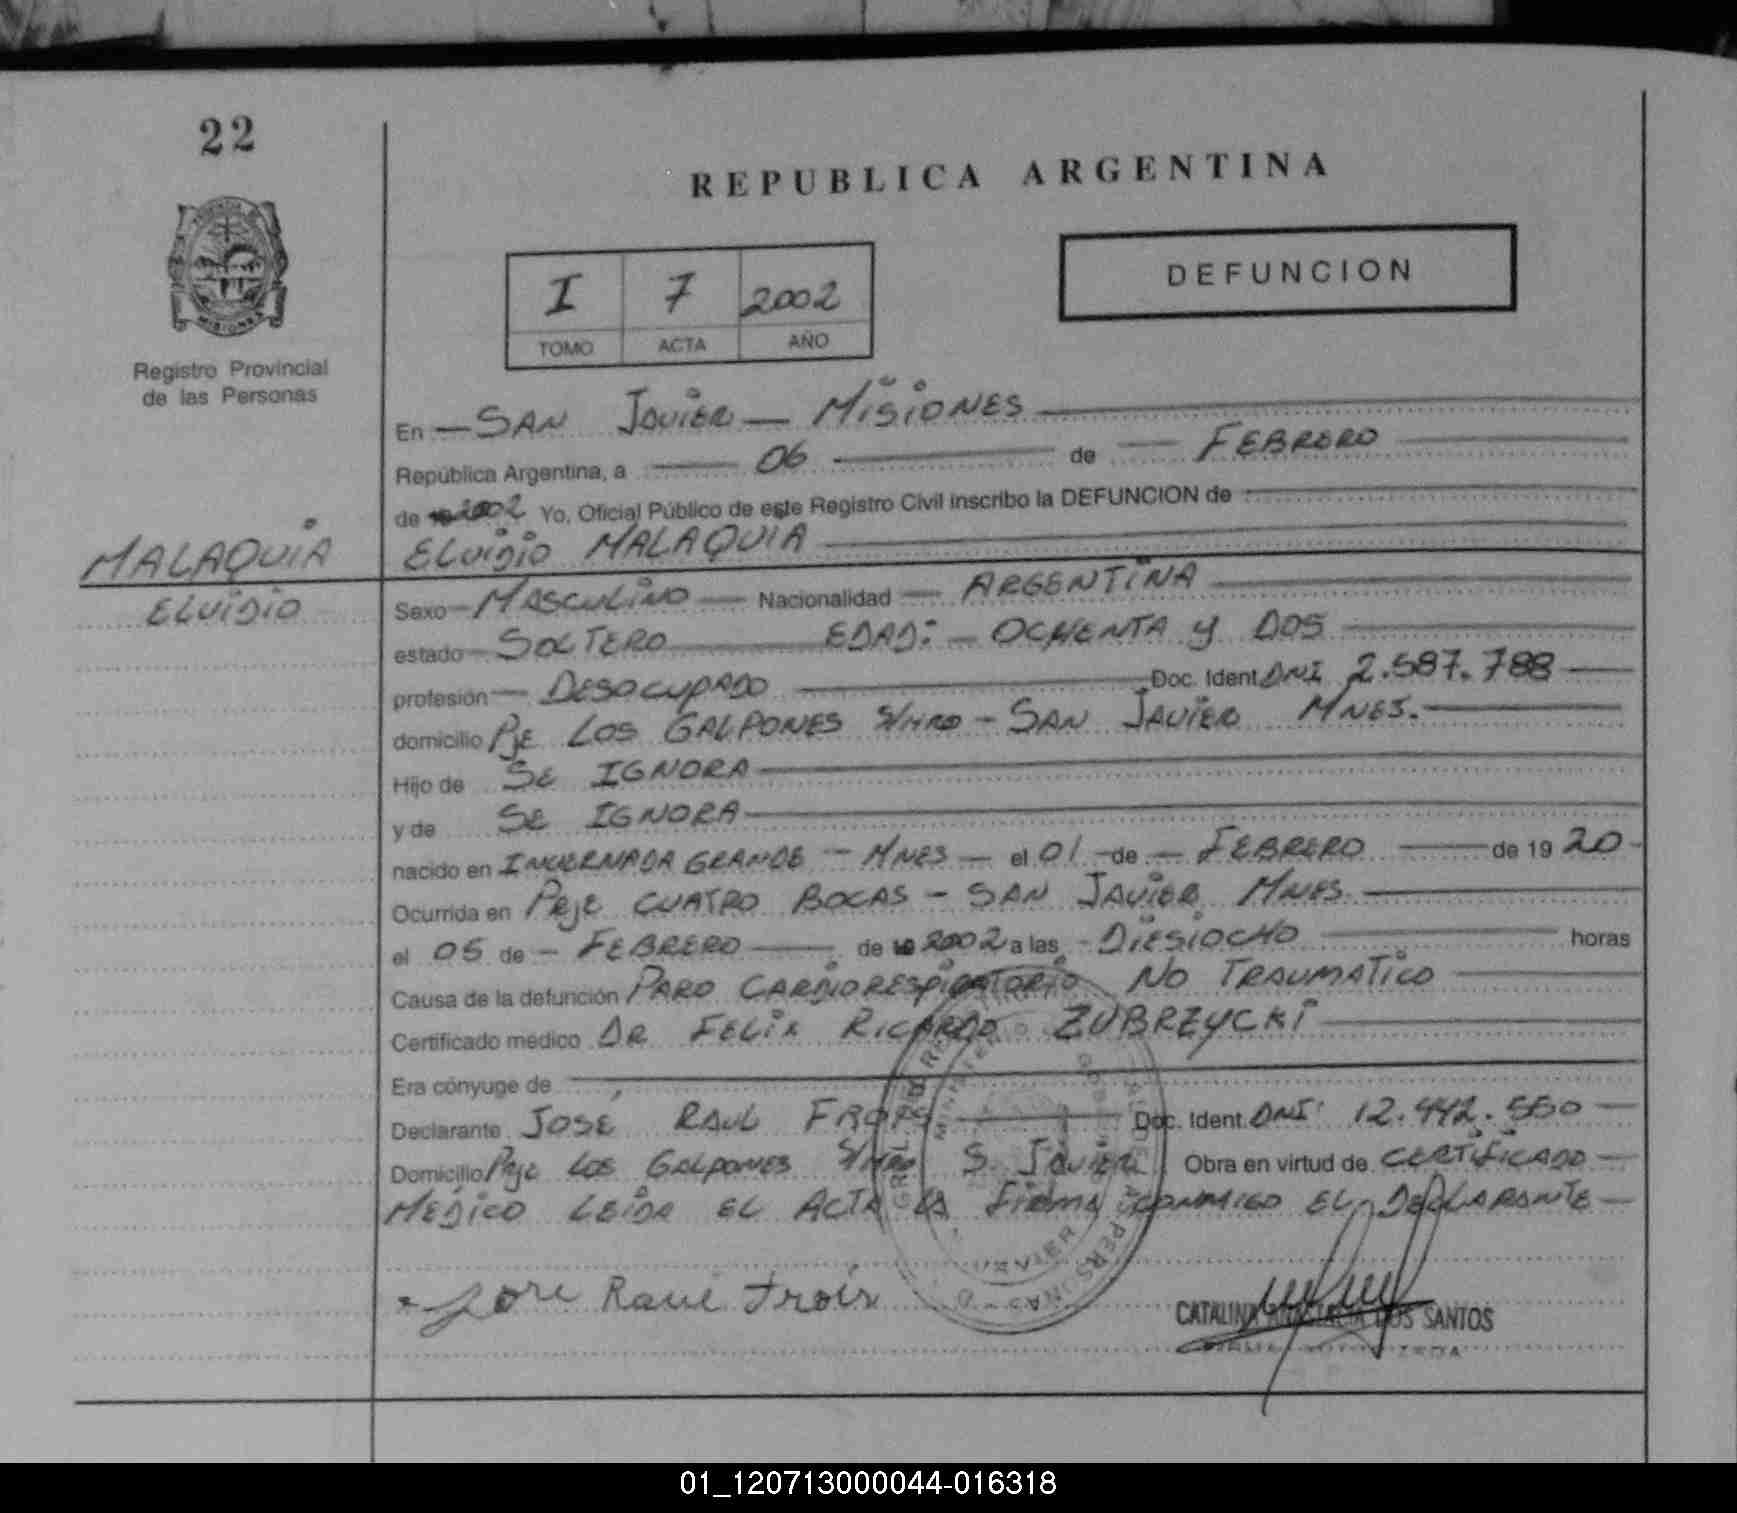 22
REPUBLICA ARGENTINA
DEFUNCION
I 7 2002
TOMO ACTA AÑO
MISIONES
Registro Provincial
de las Personas
En — SAN JAVIER — MISIONES
República Argentina, a 06 de FEBRERO
de 2002 Yo, Oficial Público de este Registro Civil inscribo la DEFUNCION de
MALAQUIA
ELVIDIO MALAQUIA
ELVIDIO
Sexo — MASCULINO — Nacionalidad — ARGENTINA
estado — SOLTERO EDAD: — OCHENTA Y DOS
profesión — DESOCUPADO Doc. Ident DNI 2.587.788
domicilio Pje LOS GALPONES S/NRO - SAN JAVIER MNES.
Hijo de SE IGNORA
y de SE IGNORA
nacido en INVERNADA GRANDE - MNES — el 01 de — FEBRERO de 19 20
Ocurrida en Peje CUATRO BOCAS - SAN JAVIER MNES
el 05 de - FEBRERO de 2002 a las - DIESIOCHO horas
Causa de la defunción PARO CARDIORESPIRATORIO NO TRAUMATICO
Certificado médico DR FELIX RICARDO ZUBRZYCKI
Era cónyuge de
Declarante JOSE RAUL FROIS Doc. Ident. DNI 12.442.550
Domicilio Peje LOS GALPONES S/NRO S. JAVIER Obra en virtud de CERTIFICADO
MEDICO LEIDA EL ACTA LA FIRMA CONMIGO EL DECLARANTE
Jose Raul Frois
CATALINA ANASTACIA DOS SANTOS
01_120713000044-016318